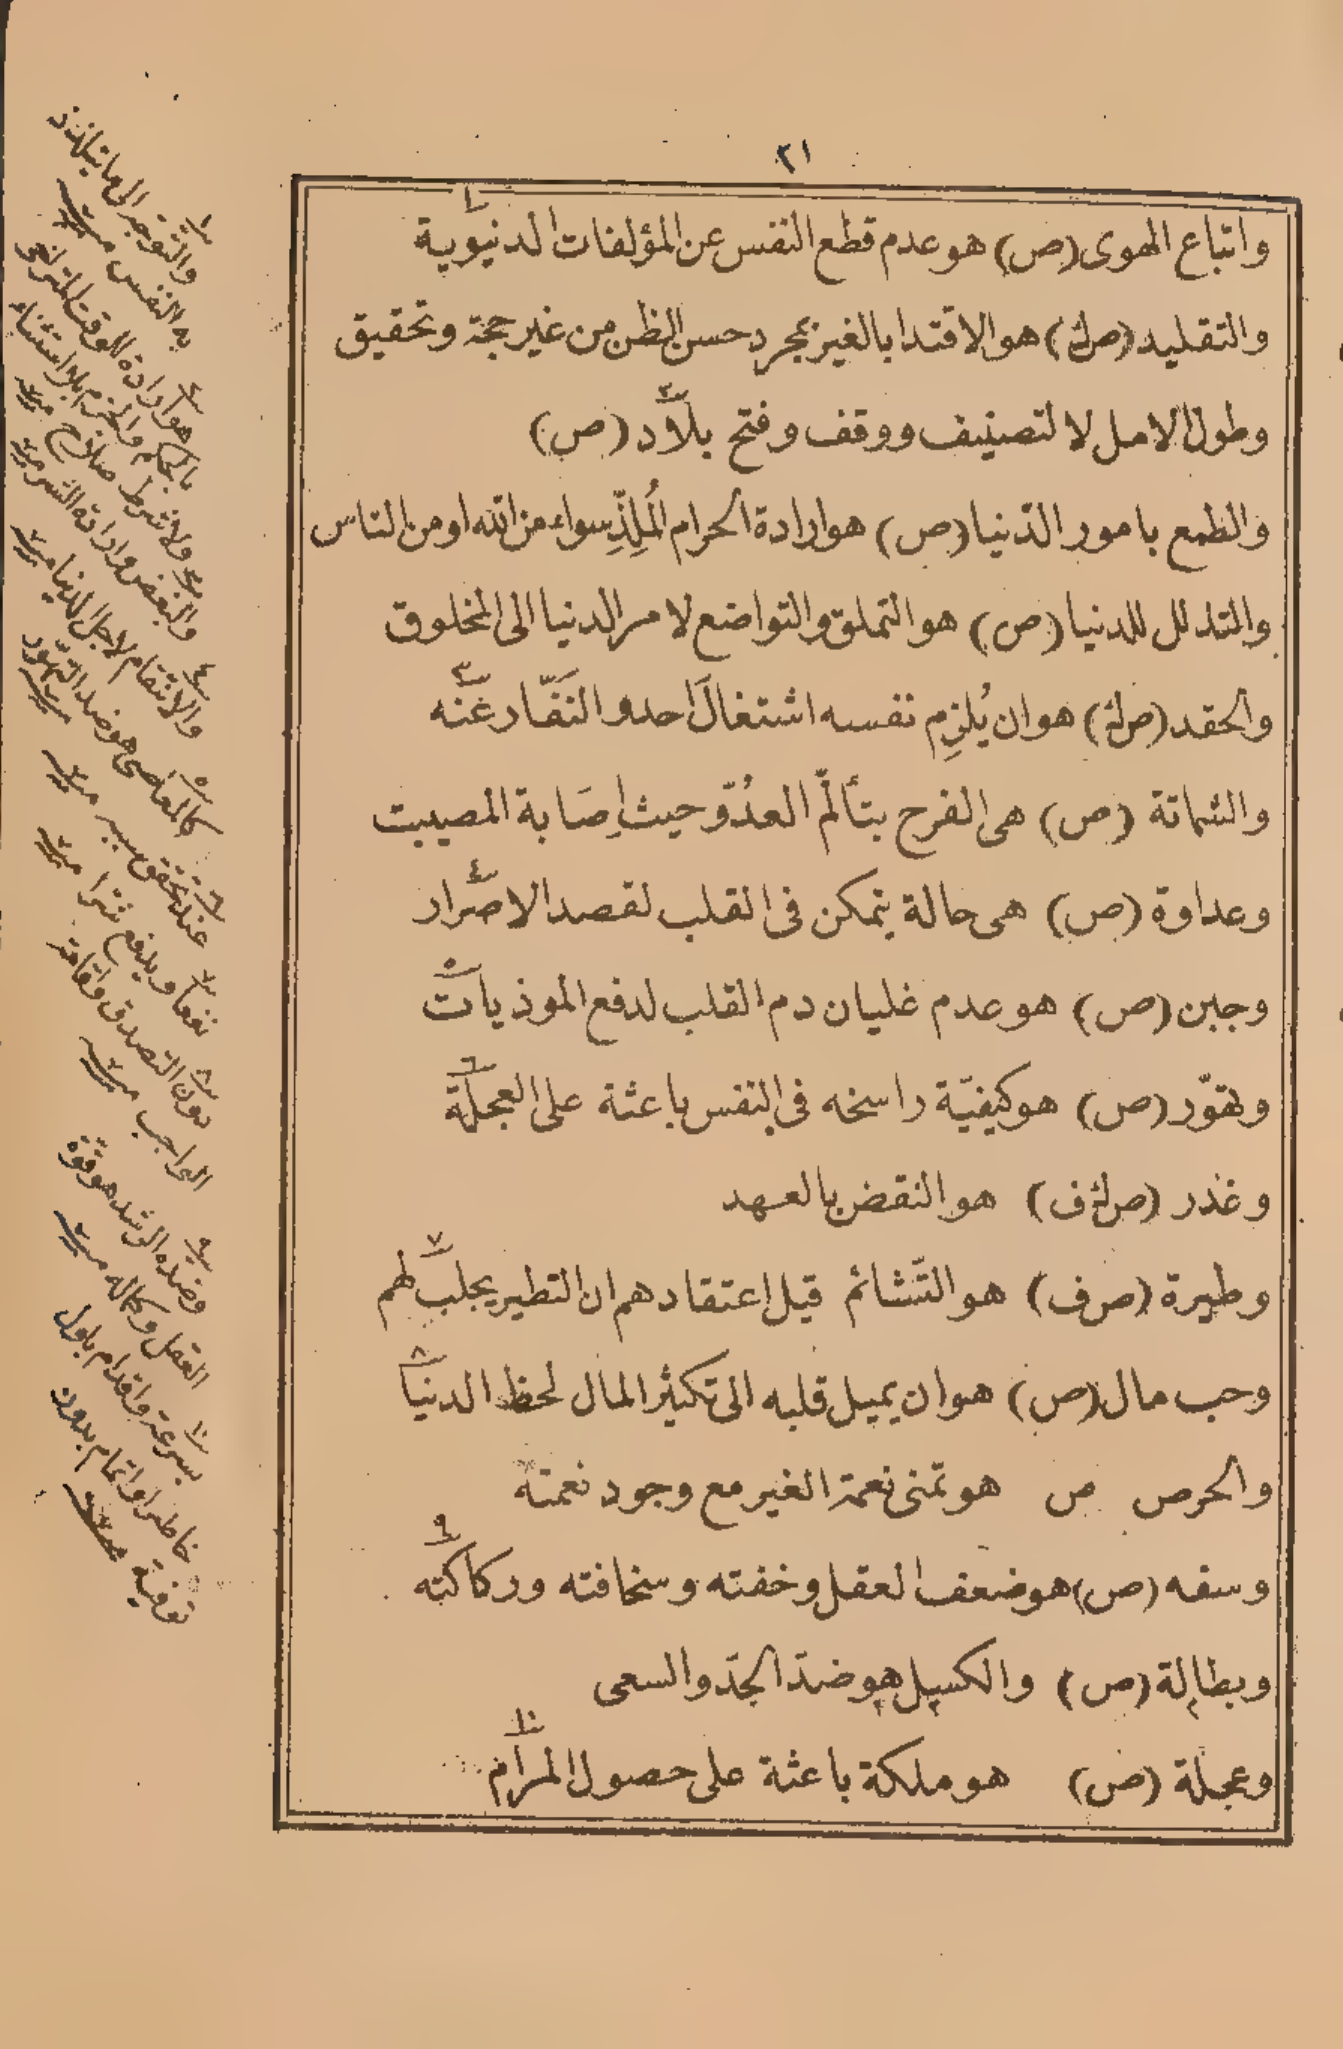 ٢١
واتباع الهوى (ص) هو عدم قطع النفس عن المؤلفات الدنيوية ١
والتقليد (ص ك) هو الاقتدا بالغير بمجرد حسن الظن من غير حجة وتحقيق
وطول الامل لا لتصنيف ووقف وفتح بلاد ٢ (ص)
والطمع بامور الدّنيا (ص) هو ارادة الحرام المُلِذِّ سواء من الله او من الناس
والتذلل للدنيا (ص) هو التملق والتواضع لامر الدنيا الى المخلوق
والحقد (ص ك) هو ان يُلزِم نفسه اشتغالَ احد والنَفّار عَنه ٣
والشماتة (ص) هى الفرح بتألّم العدُوّ حيث اِصَابة المصيبت
وعداوة (ص) هى حالة يتمكن فى القلب لقصد الاضرار ٤
وجبن (ص) هو عدم غليان دم القلب لدفع الموذيات ٥
وتهوّر (ص) هو كيفيّة راسخه فى النفس باعثة على العجلة ٦
وغدر (ص ك ف) هو النقض بالعهد
وطيرة (ص ف) هو التّشائم قيل اعتقادهم ان التطير يجلب لهم ٧
وحب مال (ص) هو ان يميل قلبه الى تكثير المال لحظ الدنيا ٨
والحرص ص هو تمنى نعمة الغير مع وجود نعمته
وسفه (ص) هو ضعف العقل وخفته وسخافته وركاكته ٩
وبطالة (ص) والكسل هو ضدّ الجدّ والسعى
وعجلة (ص) هو ملكة باعثة على حصول المرام ١٠
١
والتوجه الى ما يتلذذ
به النفس
٢
هو ارادة للوقت المتراخى
بالحكم والجزم بلا استثناء
ولا شرط صلاح
٣
والبغض وارادة الشر
٤
والانتقام لاجل الدنيا
٥
كالمعاصى هو ضد التهور
٦
عند تحقق سببه
٧
نفعا ويدفع ضرا
٨
دون التصدق واقامة
الواجب
٩
وضده الرشد هو قوة
العقل وكماله
١٠
بسرعة واقدام باول
خاطر او اتمام بدون
توفية